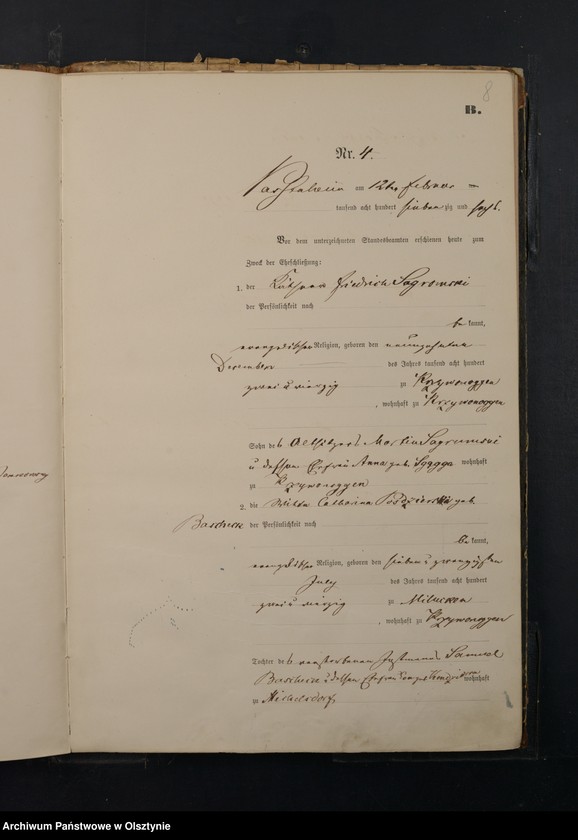 8
B.
Nr. 4.
am 12ten Februar
tausend acht hundert sieben zig und sechs.
Vor dem unterzeichneten Standesbeamten erschienen heute zum
Zweck der Eheschließung:
1. der Käthner Friedrich Sagromski
der Persönlichkeit nach
be kannt,
evangelischer Religion, geboren den neunzehnten
Dezember des Jahres tausend acht hundert
zwei u vierzig zu Krzywonoggen
, wohnhaft zu Krzywonoggen
Sohn des Altsitzers Martin Sagromski
u dessen Ehefrau Anna geb. wohnhaft
zu Krzywonoggen
2. die Wittwe Catharina geb.
der Persönlichkeit nach
be kannt,
evangelischer Religion, geboren den sieben u zwanzigsten
July des Jahres tausend acht hundert
zwei u vierzig zu
, wohnhaft zu Krzywonoggen
Tochter des verstorbenen Instmanns Samuel
u dessen Ehefrau wohnhaft
zu
Archiwum Państwowe w Olsztynie